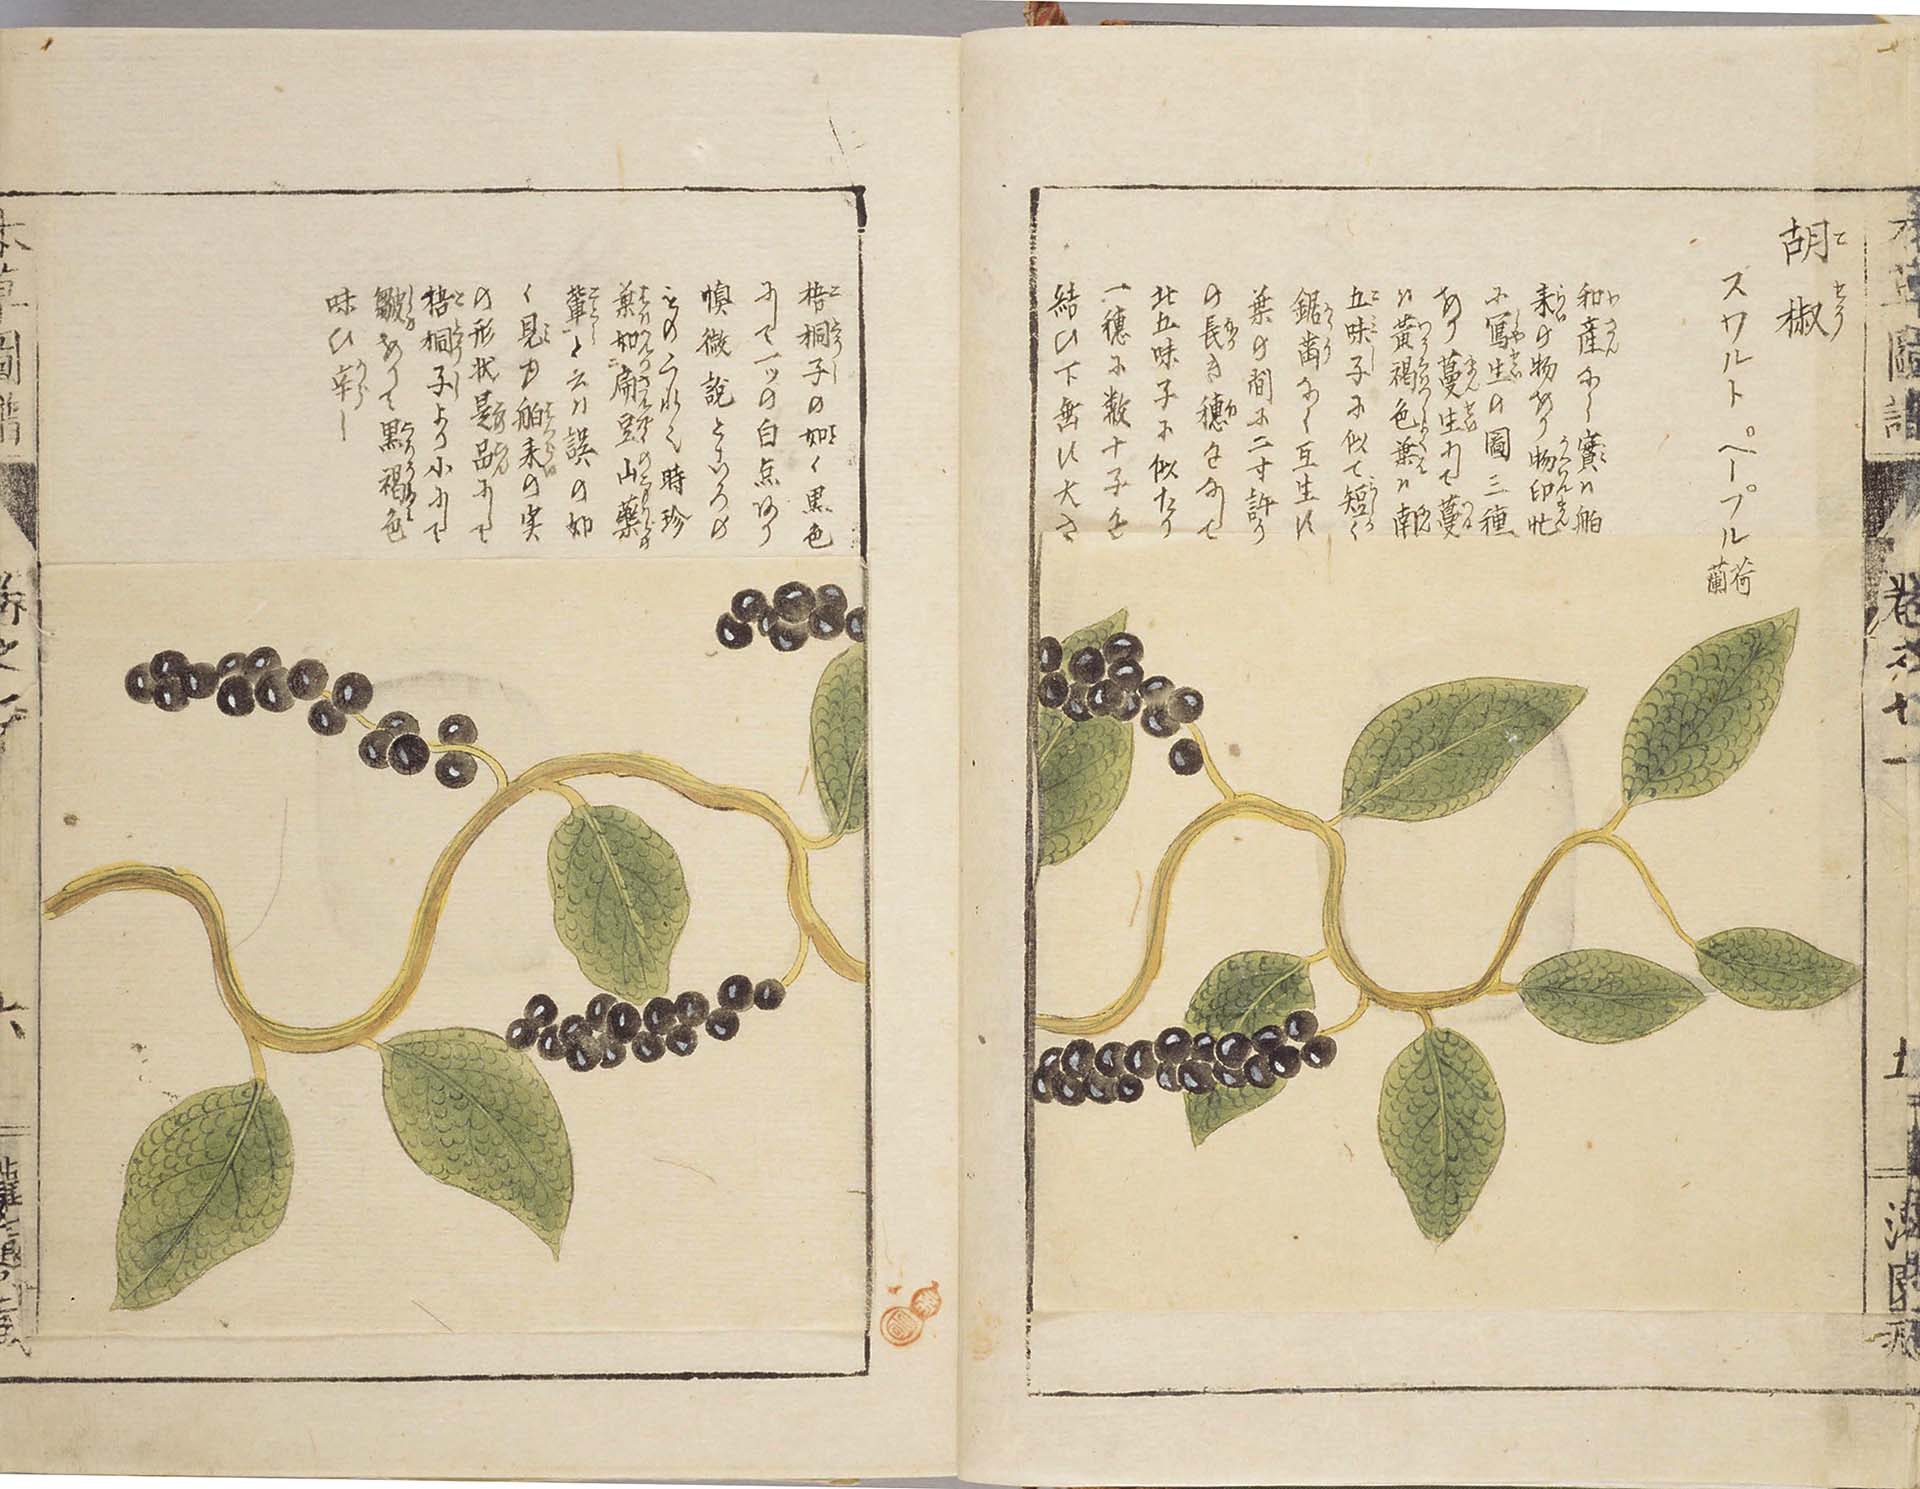 胡椒
こせう
スワルトペープル 荷蘭
和産なし實ハ舶
来の物あり物印忙
不寫生の圖三種
あり蔓生にて蔓
ハ黄褐色葉ハ南
五味子に似て短く
鋸齒なく互生す
葉の間に二寸許り
の長き穂をなして
北五味子に似たり
一穂に数十子を
結ひ下垂す大さ
梧桐子の如く黒色
にて一ツの白点あり
慎微説ところの
ものこれなり時珍
葉如扁豆山藥
輩と云ハ誤の如
く見ゆ舶来の実
の形状是品にして
梧桐子より小にして
皺ありて黒褐色
味ひ辛し
本草圖譜
巻之廿一